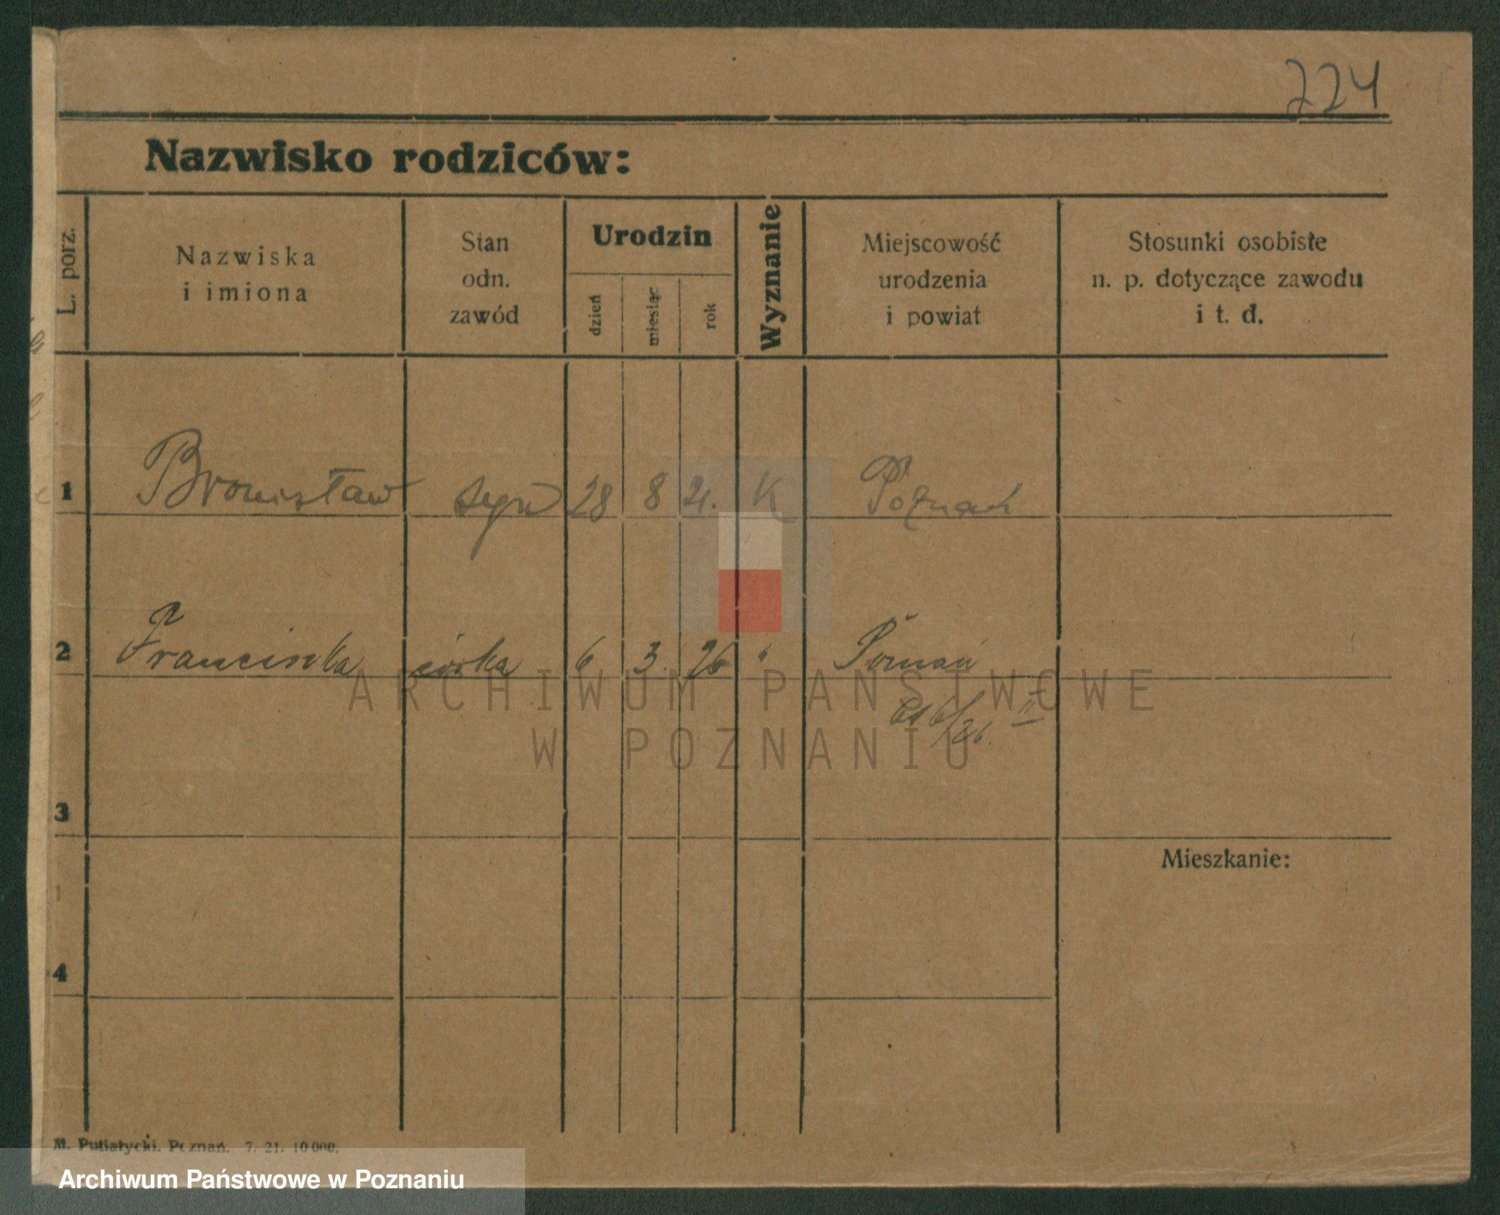 224
Nazwisko rodziców:
L. porz.
Nazwiska
i imiona
Stan
odn.
zawód
Urodzin
dzień
miesiąc
rok
Wyznanie
Miejscowość
urodzenia
i powiat
Stosunki osobiste
n. p. dotyczące zawodu
i t. d.
1 Bronisław syn 28 8 21. K Poznań
2 Franciszka córka 6 3 26 " Poznań
ARCHIWUM PAŃSTWOWE
W POZNANIU
3
Mieszkanie:
4
M. Putiatycki. Poznań. 7. 21. 10 000.
Archiwum Państwowe w Poznaniu